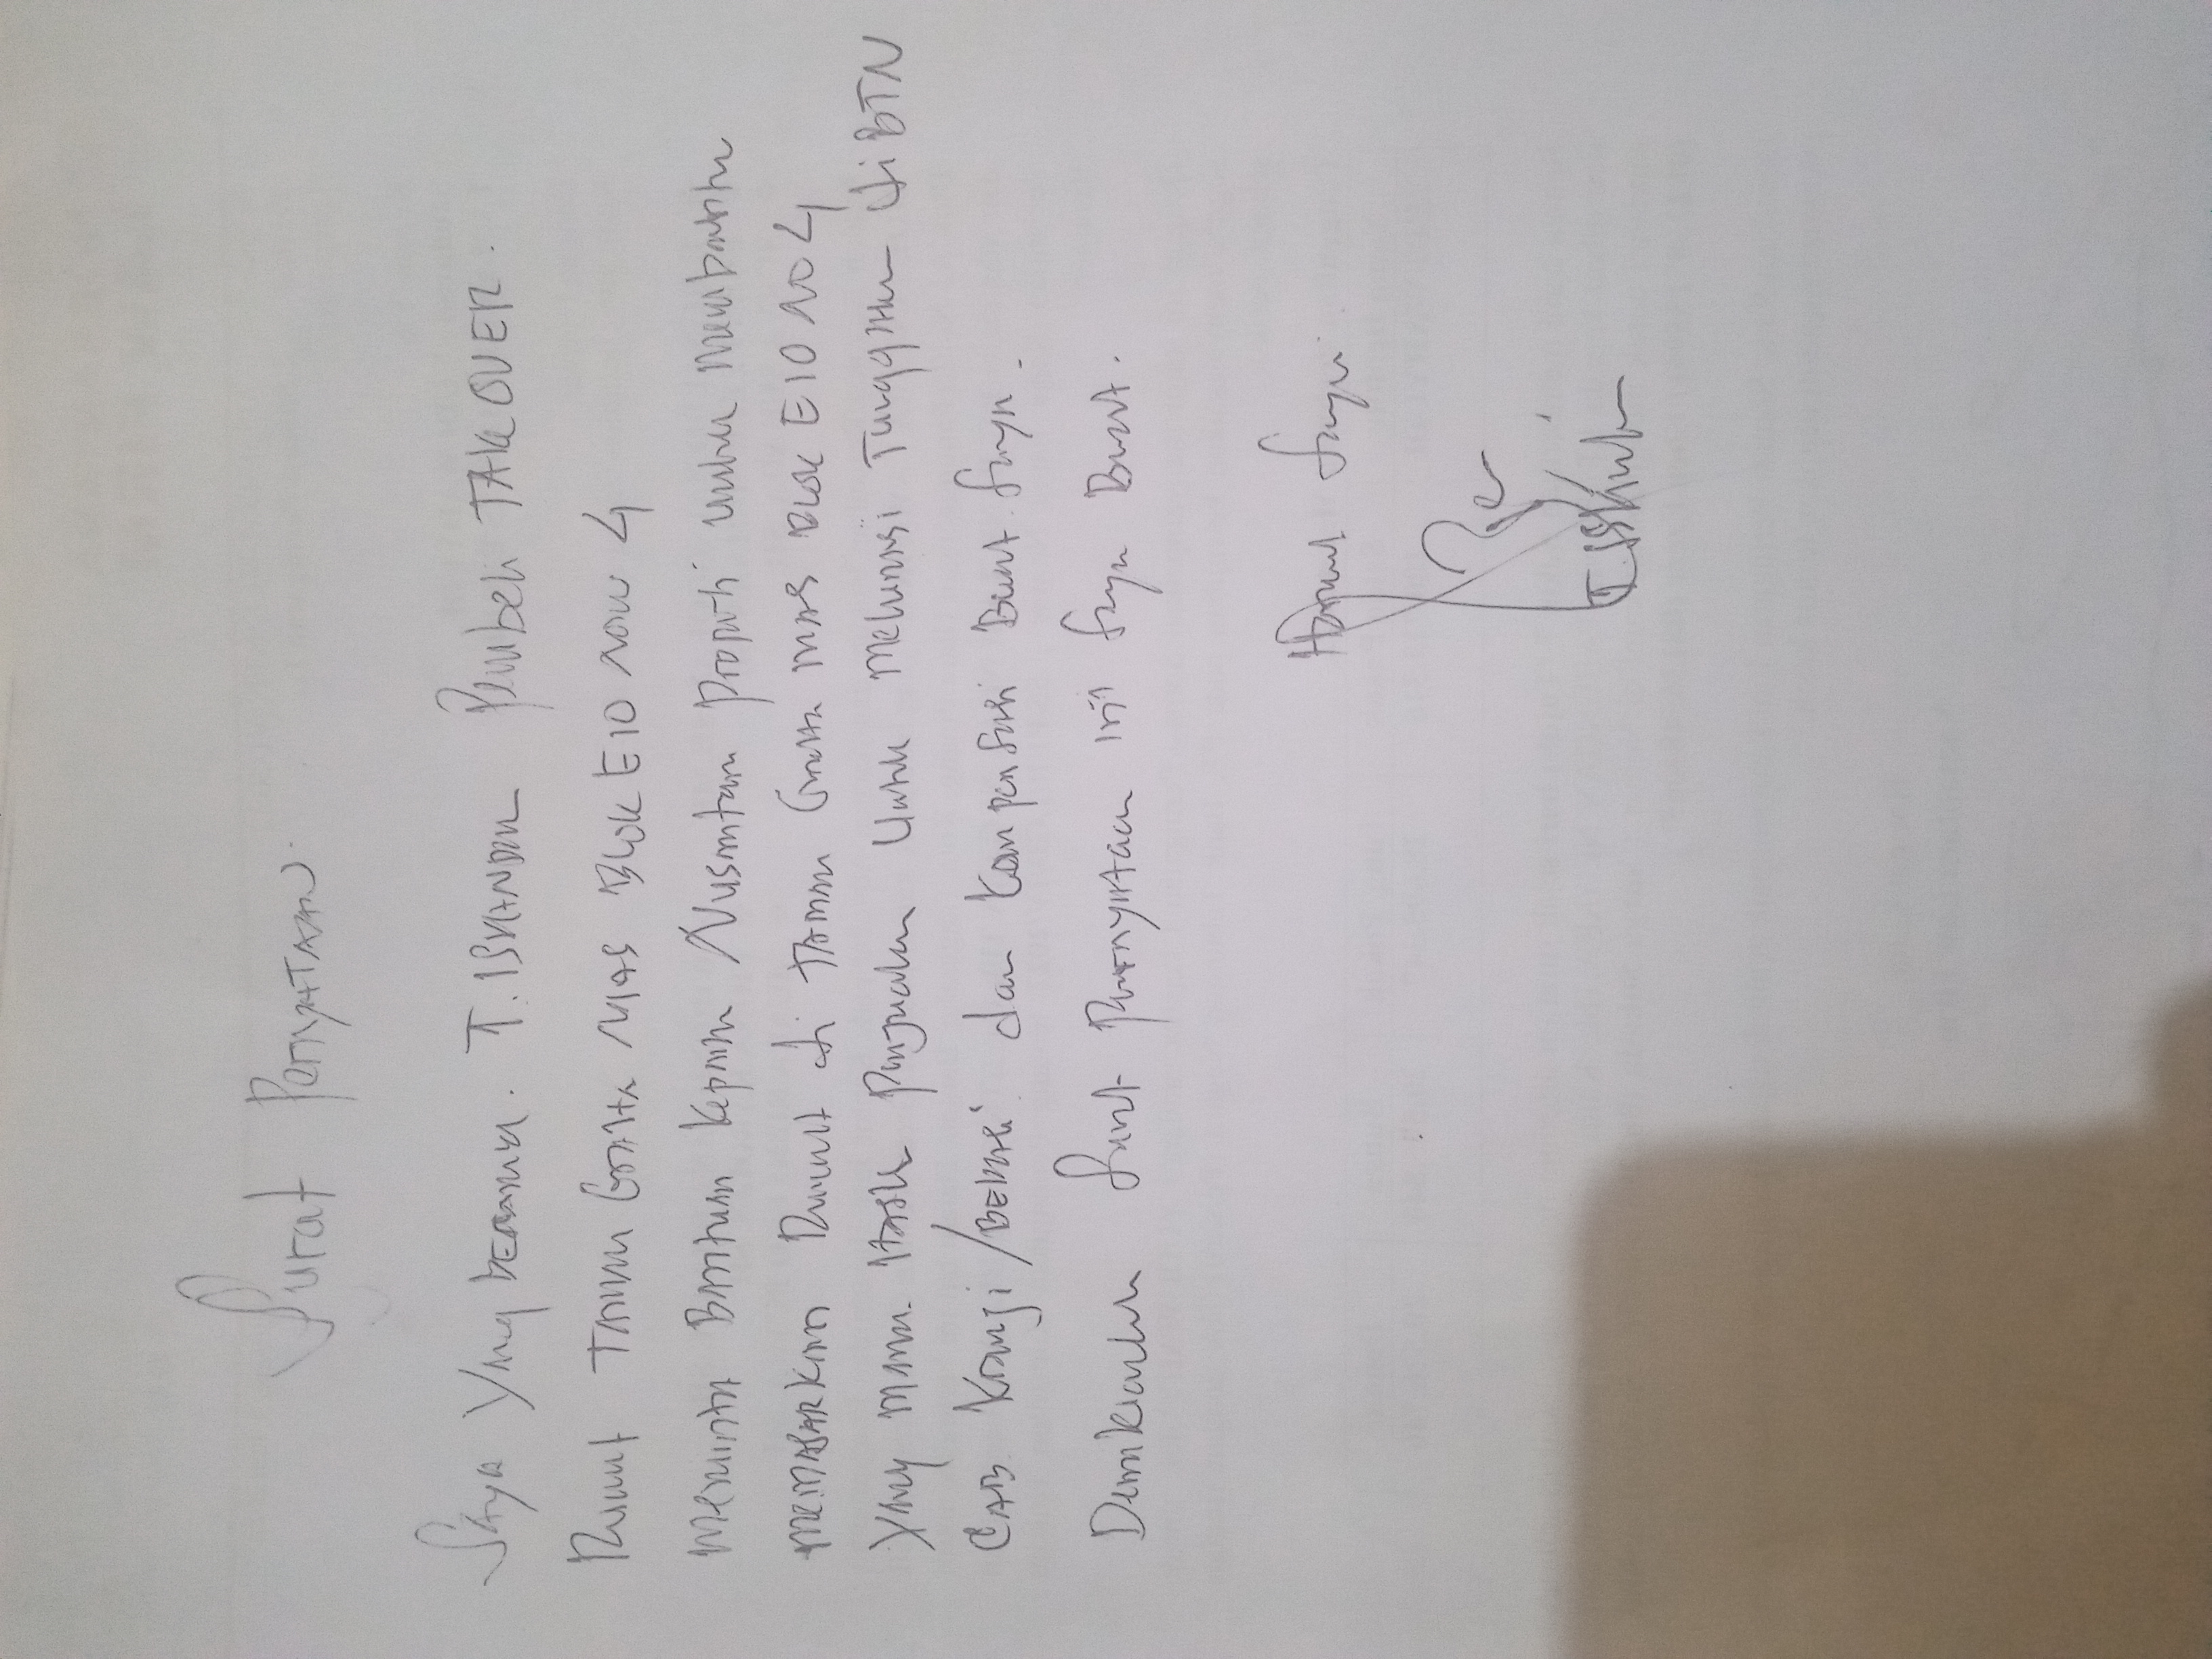 Surat Pernyataan
Saya Yang bernama. T. ISKANDAR Pembeli TAKE OVER.
Rumah Taman Graha MAS BLOK E10 NOM 4
Meminta Bantuan kepada Nusantara Properti untuk membantu
memasarkan Rumah di Taman Graha MAS BLOK E10 NO 4
Yang mana Hasil Penjualan Untuk Melunasi Tunggakan di BTN
CAB Kranji / BEKASI dan kompensasi Buat Saya.
Demikianlah Surat Pernyataan ini Saya Buat.
Hormat Saya
T. ISKANDAR